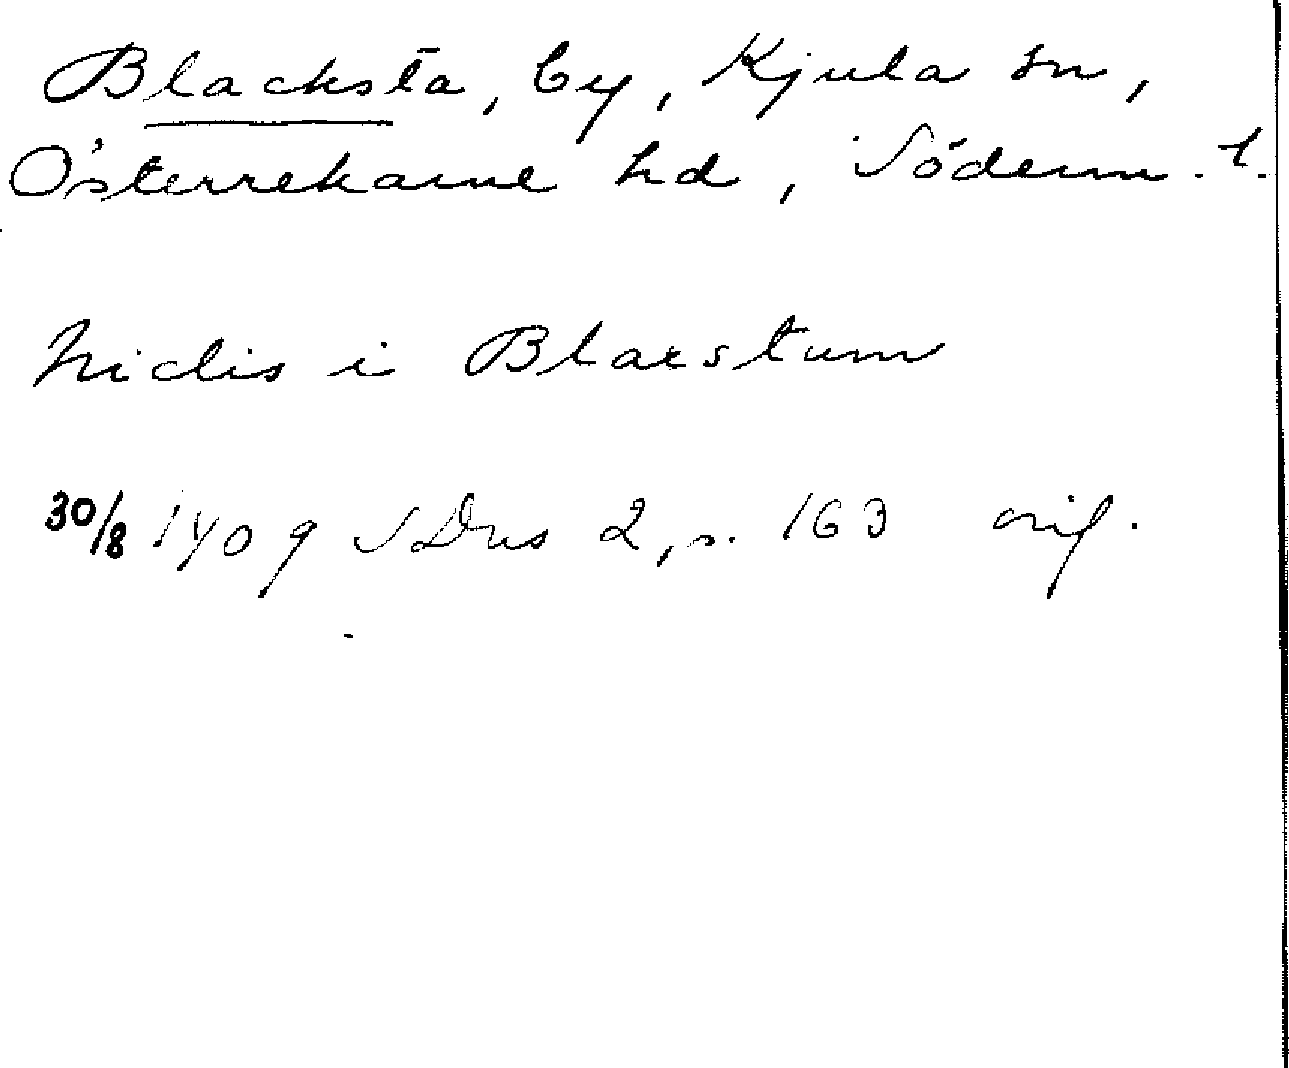 Blacksta, by, Kjula sn,
Österrekarne hd, Söderm. l.
Niclis i Blaxstum
30/8 1409 SDns 2, s. 163 orig.